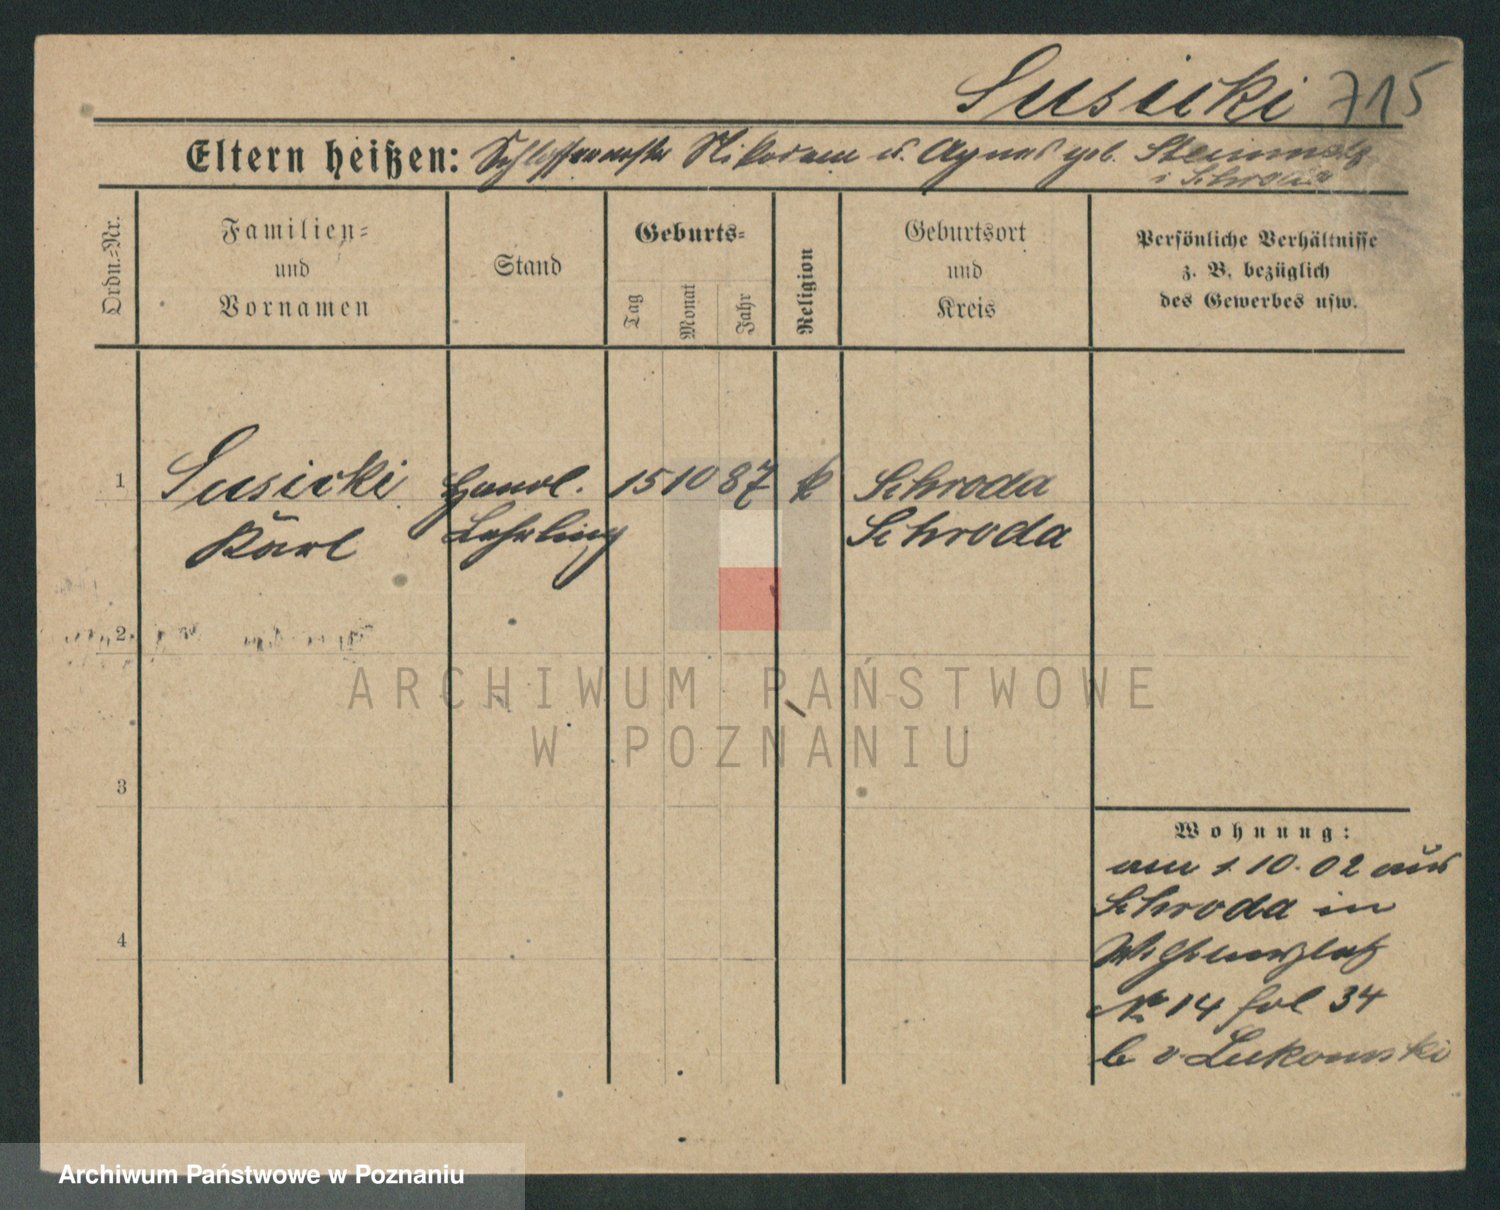 Susicki 715
Eltern heißen: Schlossermstr Nikodem u. Agnes geb. Steinmetz
i Schroda
Ordn.-Nr.
Familien-
und
Vornamen
Stand
Geburts-
Tag
Monat
Jahr
Religion
Geburtsort
und
Kreis
Persönliche Verhältnisse
z. B. bezüglich
des Gewerbes usw.
1 Susicki Handl. 15 10 87 k Schroda
Karl Lehrling Schroda
2
ARCHIWUM PAŃSTWOWE
W POZNANIU
3
Wohnung:
am 1.10.02 aus
Schroda in
4
No 14 fol 34
b v. Lukomski
Archiwum Państwowe w Poznaniu